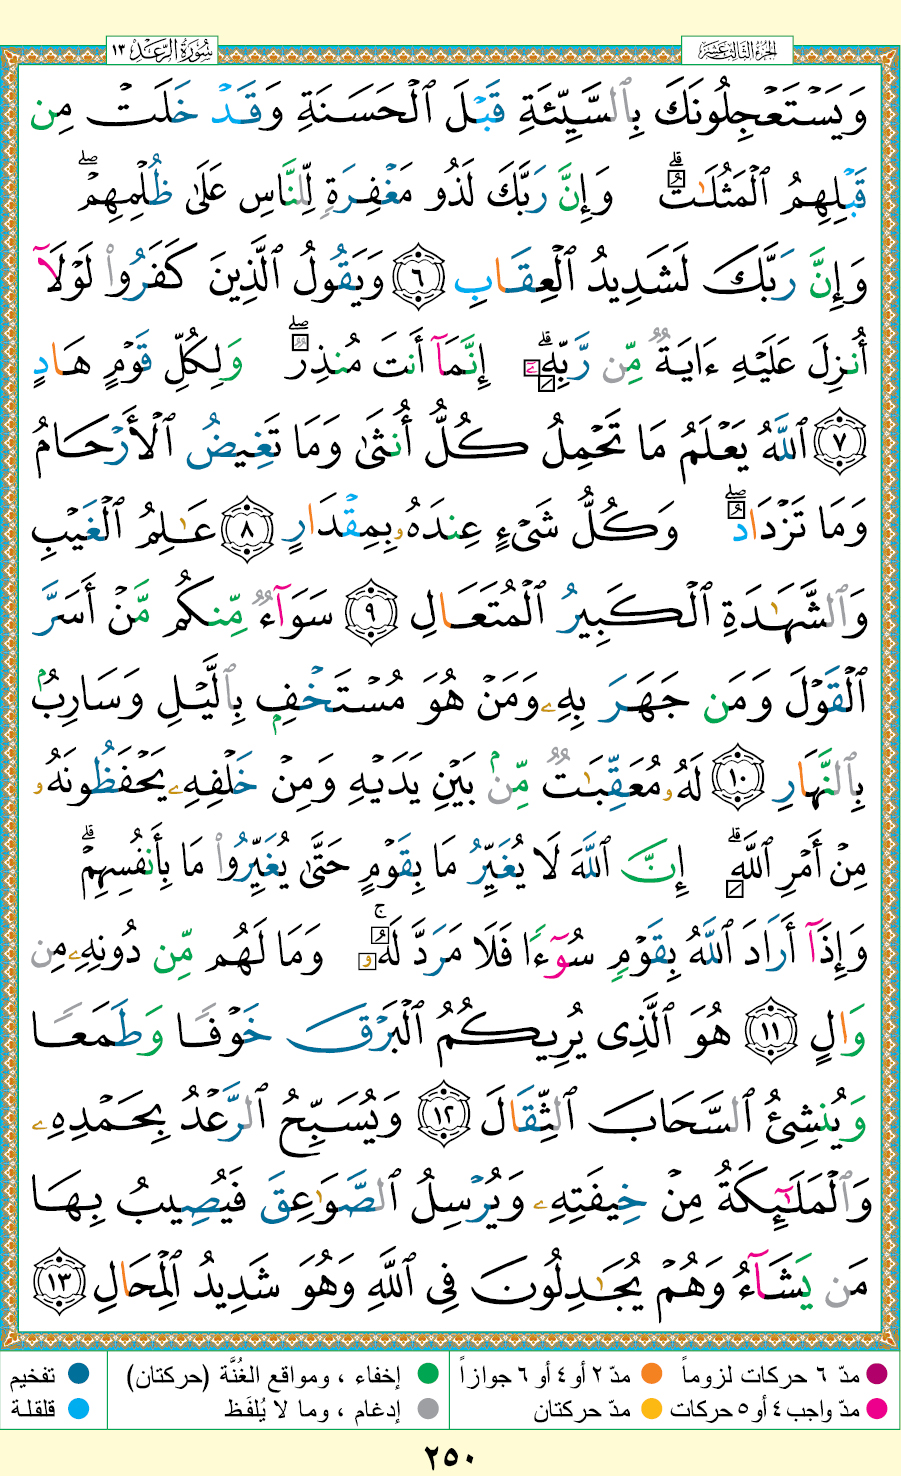 سُورَةُ الرَّعْد ١٣
الجزء الثالث عشر
وَيَسْتَعْجِلُونَكَ بِٱلسَّيِّئَةِ قَبْلَ ٱلْحَسَنَةِ وَقَدْ خَلَتْ مِن
قَبْلِهِمُ ٱلْمَثُلَـٰتُ ۗ وَإِنَّ رَبَّكَ لَذُو مَغْفِرَةٍ لِّلنَّاسِ عَلَىٰ ظُلْمِهِمْ ۖ
وَإِنَّ رَبَّكَ لَشَدِيدُ ٱلْعِقَابِ ٦ وَيَقُولُ ٱلَّذِينَ كَفَرُوا۟ لَوْلَآ
أُنزِلَ عَلَيْهِ ءَايَةٌ مِّن رَّبِّهِۦٓ ۗ إِنَّمَآ أَنتَ مُنذِرٌ ۖ وَلِكُلِّ قَوْمٍ هَادٍ
٧ ٱللَّهُ يَعْلَمُ مَا تَحْمِلُ كُلُّ أُنثَىٰ وَمَا تَغِيضُ ٱلْأَرْحَامُ
وَمَا تَزْدَادُ ۖ وَكُلُّ شَىْءٍ عِندَهُۥ بِمِقْدَارٍ ٨ عَـٰلِمُ ٱلْغَيْبِ
وَٱلشَّهَـٰدَةِ ٱلْكَبِيرُ ٱلْمُتَعَالِ ٩ سَوَآءٌ مِّنكُم مَّنْ أَسَرَّ
ٱلْقَوْلَ وَمَن جَهَرَ بِهِۦ وَمَنْ هُوَ مُسْتَخْفٍۭ بِٱلَّيْلِ وَسَارِبٌۢ
بِٱلنَّهَارِ ١٠ لَهُۥ مُعَقِّبَـٰتٌ مِّنۢ بَيْنِ يَدَيْهِ وَمِنْ خَلْفِهِۦ يَحْفَظُونَهُۥ
مِنْ أَمْرِ ٱللَّهِ ۗ إِنَّ ٱللَّهَ لَا يُغَيِّرُ مَا بِقَوْمٍ حَتَّىٰ يُغَيِّرُوا۟ مَا بِأَنفُسِهِمْ ۗ
وَإِذَآ أَرَادَ ٱللَّهُ بِقَوْمٍ سُوٓءًا فَلَا مَرَدَّ لَهُۥ ۚ وَمَا لَهُم مِّن دُونِهِۦ مِن
وَالٍ ١١ هُوَ ٱلَّذِى يُرِيكُمُ ٱلْبَرْقَ خَوْفًا وَطَمَعًا
وَيُنشِئُ ٱلسَّحَابَ ٱلثِّقَالَ ١٢ وَيُسَبِّحُ ٱلرَّعْدُ بِحَمْدِهِۦ
وَٱلْمَلَـٰٓئِكَةُ مِنْ خِيفَتِهِۦ وَيُرْسِلُ ٱلصَّوَٰعِقَ فَيُصِيبُ بِهَا
مَن يَشَآءُ وَهُمْ يُجَـٰدِلُونَ فِى ٱللَّهِ وَهُوَ شَدِيدُ ٱلْمِحَالِ ١٣
مدّ ٦ حركات لزوماً مدّ ٢ أو ٤ أو ٦ جوازاً إخفاء ، ومواقع الغُنَّة (حركتان) تفخيم
مدّ واجب ٤ أو ٥ حركات مدّ حركتان إدغام ، وما لا يُلفَظ قلقلة
٢٥٠